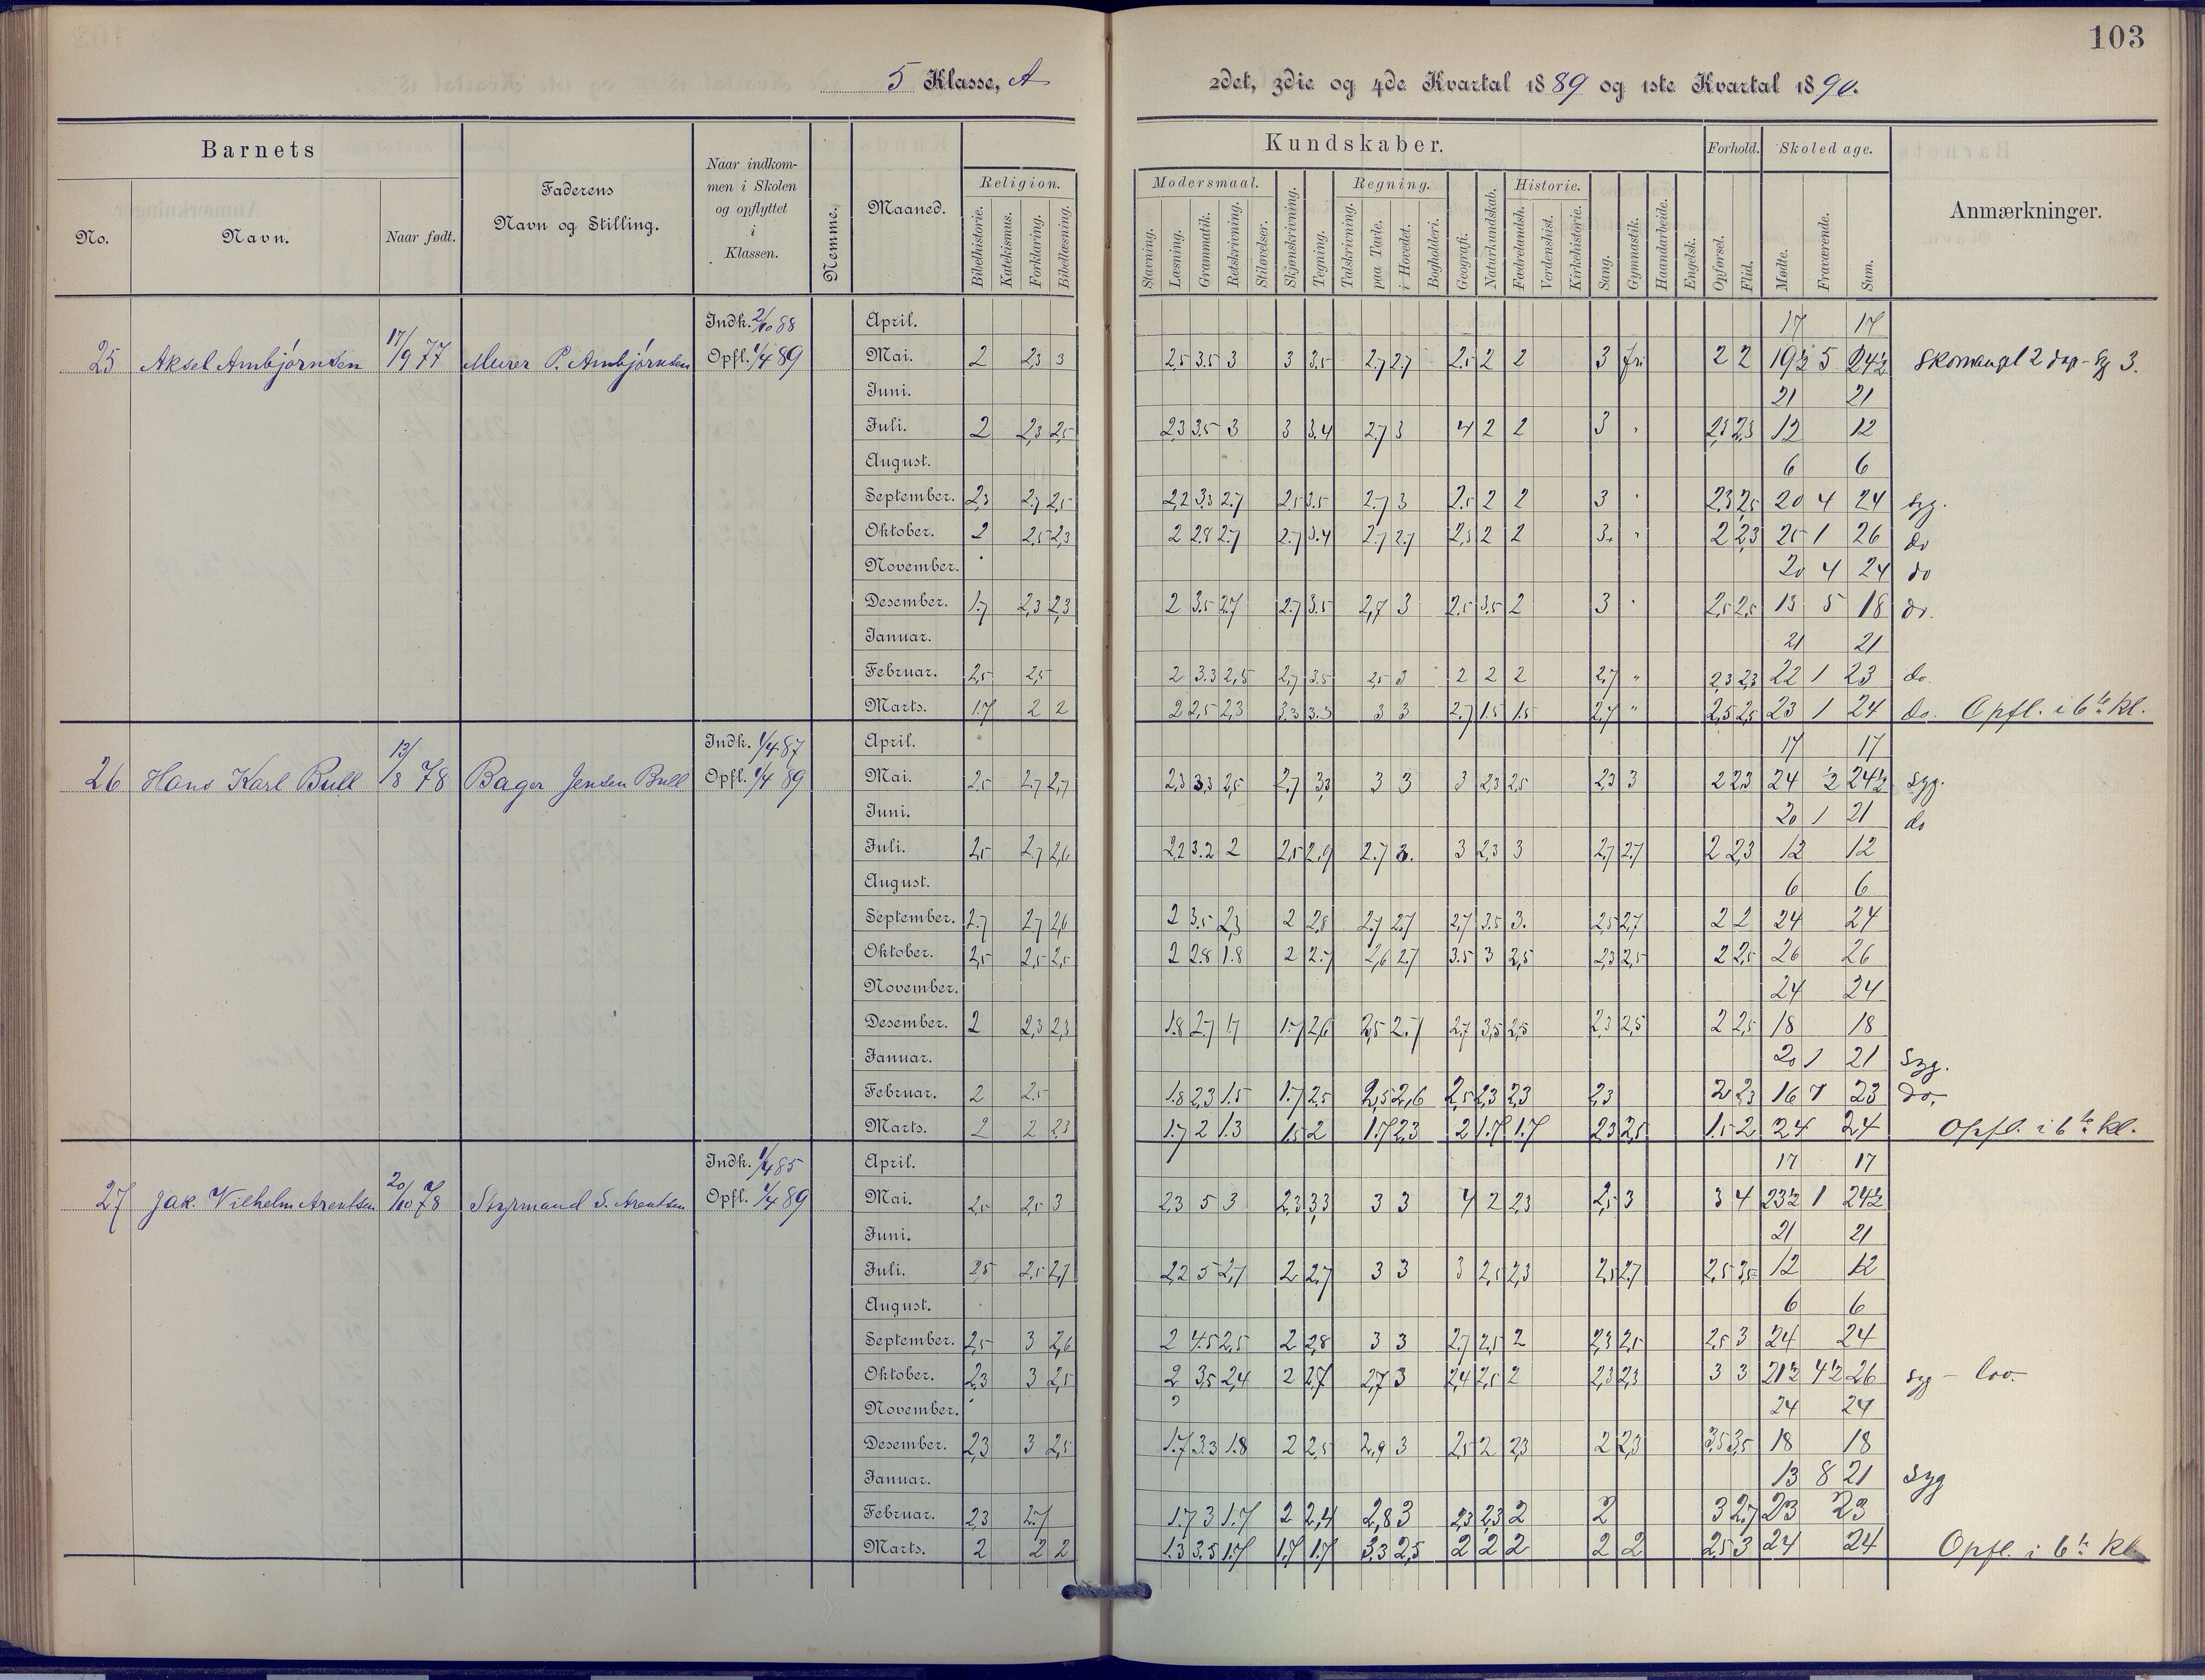 103
5 Klasse, A
2det, 3die og 4de Kvartal 1889 og 1ste Kvartal 1890.
Barnets
Faderens Navn og Stilling.
Naar indkommen i Skolen og opflyttet i Klassen.
Nemme.
Maaned.
Kundskaber.
Forhold.
Skoledage.
Anmærkninger.
No.
Navn.
Naar født.
Religion.
Bibelhistorie. Katekismus. Forklaring. Bibellæsning.
Modersmaal.
Stavning. Læsning. Grammatik. Retskrivning. Stiløvelser.
Skjønskrivning. Tegning.
Regning.
Talskrivning. paa Tavle. i Hovedet. Bogholderi.
Geografi. Naturkundskab.
Historie.
Fædrelandsh. Verdenshist. Kirkehistorie.
Sang. Gymnastik. Haandarbeide. Engelsk.
Opførsel. Flid.
Mødte. Fraværende. Sum.
25 Aksel Ambjörnsen 17/9 77 Murer P. Ambjörnsen Indk. 2/10 88 Opfl. 1/4 89
April. 17 17
Mai. 2 2,3 3 2,5 3.5 3 3 3,5 2,7 2,7 2,5 2 2 3 fri 2 2 19½ 5 24½ Skomangel 2 dag - Sg 3.
Juni. 21 21
Juli. 2 2,3 2,5 2,3 3.5 3 3 3,4 2,7 3 4 2 2 3 2,3 2,3 12 12
August. 6 6
September. 2,3 2,7 2,5 2,2 3,3 2,7 2,5 3.5 2,7 3 2,5 2 2 3 2,3 2,5 20 4 24 Syg.
Oktober. 2 2,5 2,3 2 2.8 2,7 2,7 3.4 2,7 2,7 2,3 2 2 3. 2 2,3 25 1 26 do
November. 20 4 24 do
Desember. 1.7 2,3 2,3 2 3.5 2,7 2,7 3.5 2,7 3 2,5 3.5 2 3 2,5 2,5 13 5 18 do.
Januar. 21 21
Februar. 2,5 2,5 2 3.3 2,5 2,7 3.5 2,5 3 2 2 2 2,7 " 2,3 2,3 22 1 23 do.
Marts. 1.7 2 2 2 2,5 2,3 3.3 3.3 3 3 2,7 1.5 1.5 2,7 " 2,5 2,5 23 1 24 do. Opfl. i 6te kl.
26 Hans Karl Bull 13/8 78 Bager Jensen Bull Indk. 1/4 87 Opfl. 1/4 89
April. 17 17
Mai. 2,5 2,7 2,7 2,3 3,3 2,5 2,7 3,3 3 3 3 2,3 2,5 2,3 3 2 2,3 24 ½ 24½ Syg.
Juni. 20 1 21 do
Juli. 2,5 2,7 2,6 2,2 3.2 2 2,5 2,9 2.7 3. 3 2,3 3 2,7 2,7 2 2,3 12 12
August. 6 6
September. 2.7 2,7 2,6 2 3.5 2,3 2 2,8 2,7 2,7 2,7 3.5 3. 2,5 2,7 2 2 24 24
Oktober. 2,5 2,5 2,5 2 2.8 1.8 2 2.7 2,6 2.7 3.5 3 2,5 2,3 2,5 2 2,5 26 26
November. 24 24
Desember. 2 2,3 2,3 1.8 2.7 1.7 1.7 2,6 2,5 2.7 2,7 3,5 2,5 2,3 2,5 2 2,5 18 18
Januar. 20 1 21 Syg.
Februar. 2 2,5 1.8 2.3 1.5 1.7 2.5 2,5 2,6 2,5 2,3 2,3 2,3 2 2,3 16 7 23 do.
Marts. 2 2 2,3 1.7 2 1.3 1.5 2 1.7 2,3 2 1.7 1.7 2,3 2,5 1.5 2 24 24 Opfl. i 6te kl.
27 Jak. Vilhelm Arentsen 20/10 78 Styrmand S. Arentsen Indk. 1/4 85 Opfl. 1/4 89
April. 17 17
Mai. 2,5 2,5 3 2,3 5 3 2,3 3,3 3 3 4 2 2,3 2,5 3 3 4 23½ 1 24½
Juni. 21 21
Juli. 2,5 2,5 2,7 2,2 5 2,7 2 2,7 3 3 3 2,5 2,3 2,5 2,7 2,5 3,5 12 12
August. 6 6
September. 2,5 3 2,6 2 4.5 2,5 2 2,8 3 3 2,7 2,5 2 2,3 2,5 2,5 3 24 24
Oktober. 2,3 3 2,5 2 3,5 2,4 2 2,7 2,7 3 2,4 2,5 2 2,3 2,3 3 3 21½ 4½ 26 Syg - lov.
November. 24 24
Desember. 2,3 3 2,5 1.7 3.3 1.8 2 2,5 2,9 3 2,5 2 2,3 2 2,3 3,5 3,5 18 18
Januar. 13 8 21 Syg
Februar. 2,3 2.7 1.7 3 1.7 2 2,4 2,8 3 2,3 2,3 2 2 3 2,7 23 23
Marts. 2 2 2 1.3 3.5 1.7 1.7 1.7 3.3 2,5 2 2 2 2 2 2,5 3 24 24 Opfl. i 6te kl.